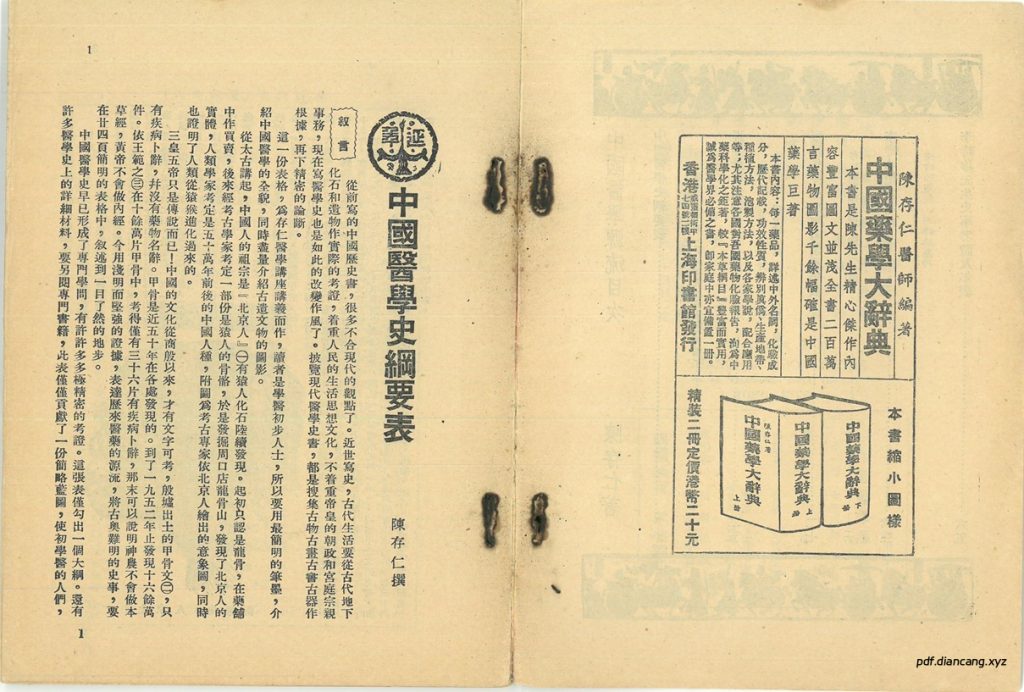 陳存仁醫師編著
中國藥學大辭典
本書是陳先生精心傑作內
容豐富圖文並茂全書二百萬
言藥物圖影千餘幅確是中國
藥學巨著
本書內容:每一藥品,詳述中外名詞,化驗成
分,歷代記載,功效性質,辨別真偽,生產地帶、
種植方法,泡製方法,以及各家學說,配合應用
等;尤其注意各國對吾國藥物化驗報告,洵爲中
藥科學化之鉅著,較『本草綱目』豐富而實用,
誠爲醫學界必備之書,即家庭中亦宜備置一冊。
香港 上海印書館發行
本書縮小圖樣
中國藥學大辭典 下冊
中國藥學大辭典 上冊
陳存仁著
中國藥學大辭典 上冊
精裝二冊定價港幣二十元
1
中國醫學史綱要表
陳存仁撰
叙言
從前寫的中國歷史書,很多不合現代的觀點了。近世寫史,古代生活要從古代地下
化石和遺物作實際的考證,着重人民的生活思想文化,不着重帝皇的朝政和宮庭宗親
事務,現在寫醫學史也是如此的改變作風了。披覽現代醫學史書,都是搜集古物古畫古書古器作
根據,再下精密的論斷。
這一份表格,爲存仁醫學講座講義而作,讀者是學醫初步人士,所以要用最簡明的筆墨,介
紹中國醫學的全貌,同時盡量介紹古遺文物的圖影。
從太古講起,中國人的祖宗是『北京人』㊀有猿人化石陸續發現。起初只認是龍骨,在藥舖
中作買賣,後來經考古學家考定一部份是猿人的骨骼,於是發掘周口店龍骨山,發現了北京人的
實體,人類學家考定是五十萬年前後的中國人種,附圖爲考古專家依北京人繪出的意象圖,同時
也證明了人類從猿猴進化過來的。
三皇五帝只是傳說而已!中國的文化從商殷以來,才有文字可考,殷墟出土的甲骨文㊁,只
有疾病卜辭,幷沒有藥物名辭。甲骨是近五十年在各處發現的。到了一九五二年止發現十六餘萬
件。依王範之㊂在十餘萬片甲骨中,考得僅有三十六片有疾病卜辭,那末可以說明神農不會做本
草經,黃帝不會做內經。今用淺明而堅強的證據,表達歷來醫藥的源流,將古奧難明的史事,要
在廿四頁簡明的表格中,叙述到一目了然的地步。
中國醫學史早已形成了專門學問,有許許多多極精密的考證。這張表僅勾出一個大綱。還有
許多醫學史上的詳細材料,要另閱專門書籍,此表僅僅貢獻了一份簡略藍圖,使初學醫的人們,
1
pdf.diancang.xyz